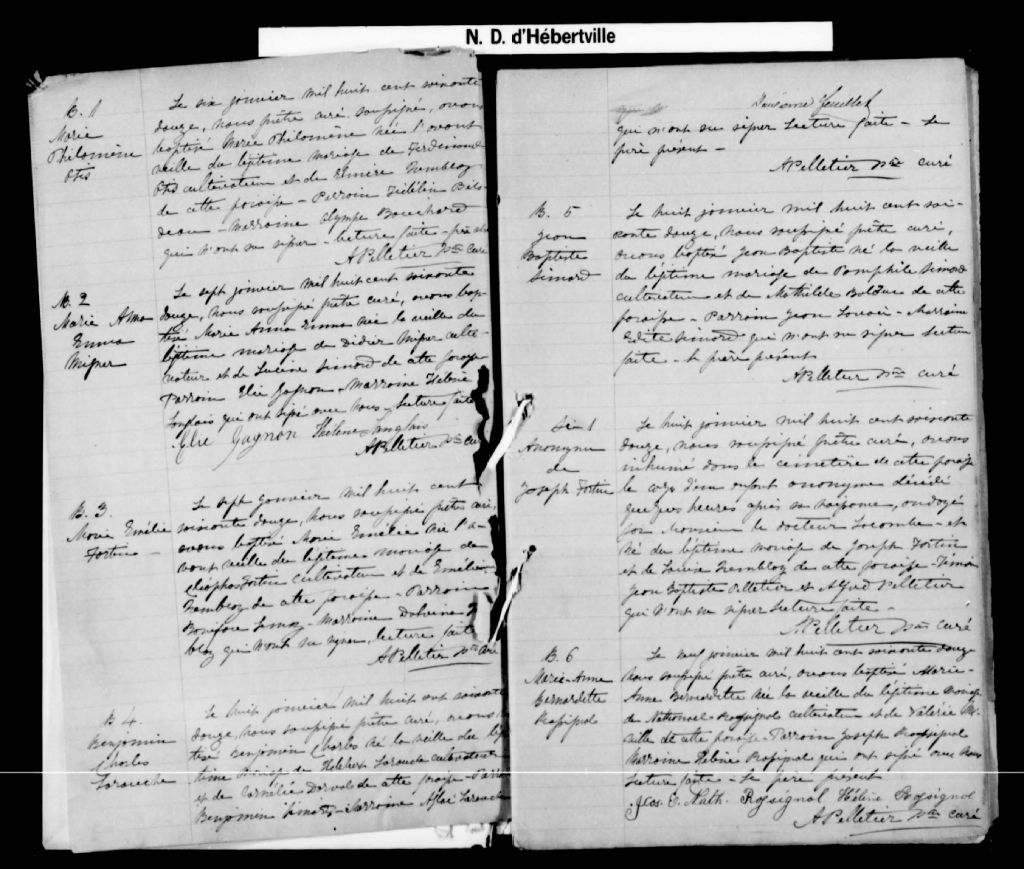 N. D. d'Hébertville
B. 1
Marie
Philomène
Otis
Le six janvier mil huit cent soixante
douze, nous prêtre curé soussigné, avons
baptisé Marie Philomène née l'avant
veille du légitime mariage de Ferdinand
Otis cultivateur et de Tremblay
de cette paroisse – Parrain Fidélin Bilo-
deau – Marraine Olympe Bouchard
qui n'ont su signer – Lecture faite –
A Pelletier Ptre curé
B. 2
Marie Anna
Emma
Migner
Le sept janvier mil huit cent soixante
douze, nous soussigné prêtre curé, avons bap-
tisé Marie Anna Emma née la veille du
légitime mariage de Didier Migner culti-
vateur et de Lucine Simard de cette paroisse
Parrain Elie Gagnon, Marraine Hélène
Langlais qui ont signé avec nous – Lecture faite
Elie Gagnon Hélène Langlais
A Pelletier Ptre curé
B. 3.
Marie Emélie
Fortin –
Le sept janvier mil huit cent
soixante douze, nous soussigné prêtre curé,
avons baptisé Marie Emélie née l'a-
vant veille du légitime mariage de
Cléophas Fortin cultivateur et de Emélie
Tremblay de cette paroisse – Parrain
Boniface – Marraine
blay qui n'ont su signer, lecture faite
A Pelletier Ptre curé
B 4.
Benjamin
Charles
Larouche
Le huit janvier mil huit cent soixante
douze, nous soussigné prêtre curé, avons
tisé Benjamin Charles né la veille du légi-
time mariage de Larouche cultivateur
et de Cornélie Dorval de cette paroisse – Parrain
Benjamin Simard – Marraine Larouche
Deuxième feuillet
qui n'ont su signer Lecture faite – Le
père présent –
A Pelletier Ptre curé
B. 5
Jean
Baptiste
Simard
Le huit janvier mil huit cent soi-
xante douze, nous soussigné prêtre curé,
avons baptisé Jean Baptiste né la veille
du légitime mariage de Pamphile Simard
cultivateur et de Mathilde Bolduc de cette
paroisse – Parrain Jean – Marraine
Simard qui n'ont su signer lecture
faite – le père présent
A Pelletier Ptre curé
S. 1
Anonyme
de
Joseph Fortin
Le huit janvier mil huit cent soixante
douze, nous soussigné prêtre curé, avons
inhumé dans le cimetière de cette paroisse
le corps d'un enfant anonyme décédé
quelques heures après sa naissance, ondoyé
par Monsieur le docteur Lacombe – et
né du légitime mariage de Joseph Fortin
et de Louise Tremblay de cette paroisse – Témoins
Jean Baptiste Pelletier et Alfred Pelletier
qui n'ont su signer lecture faite –
A Pelletier Ptre curé
B. 6
Marie-Anne
Bernardette
Rossignol
Le neuf janvier mil huit cent soixante douze
nous soussigné prêtre curé, avons baptisé Marie-
Anne Bernadette née la veille du légitime mariage
de Nathanael Rossignol cultivateur et de Valérie
de cette paroisse – Parrain Joseph Rossignol
Marraine Hélène Rossignol qui ont signé avec nous
Lecture faite – Le père présent
Jos. E. Nath. Rossignol Hélène Rossignol
A Pelletier Ptre curé